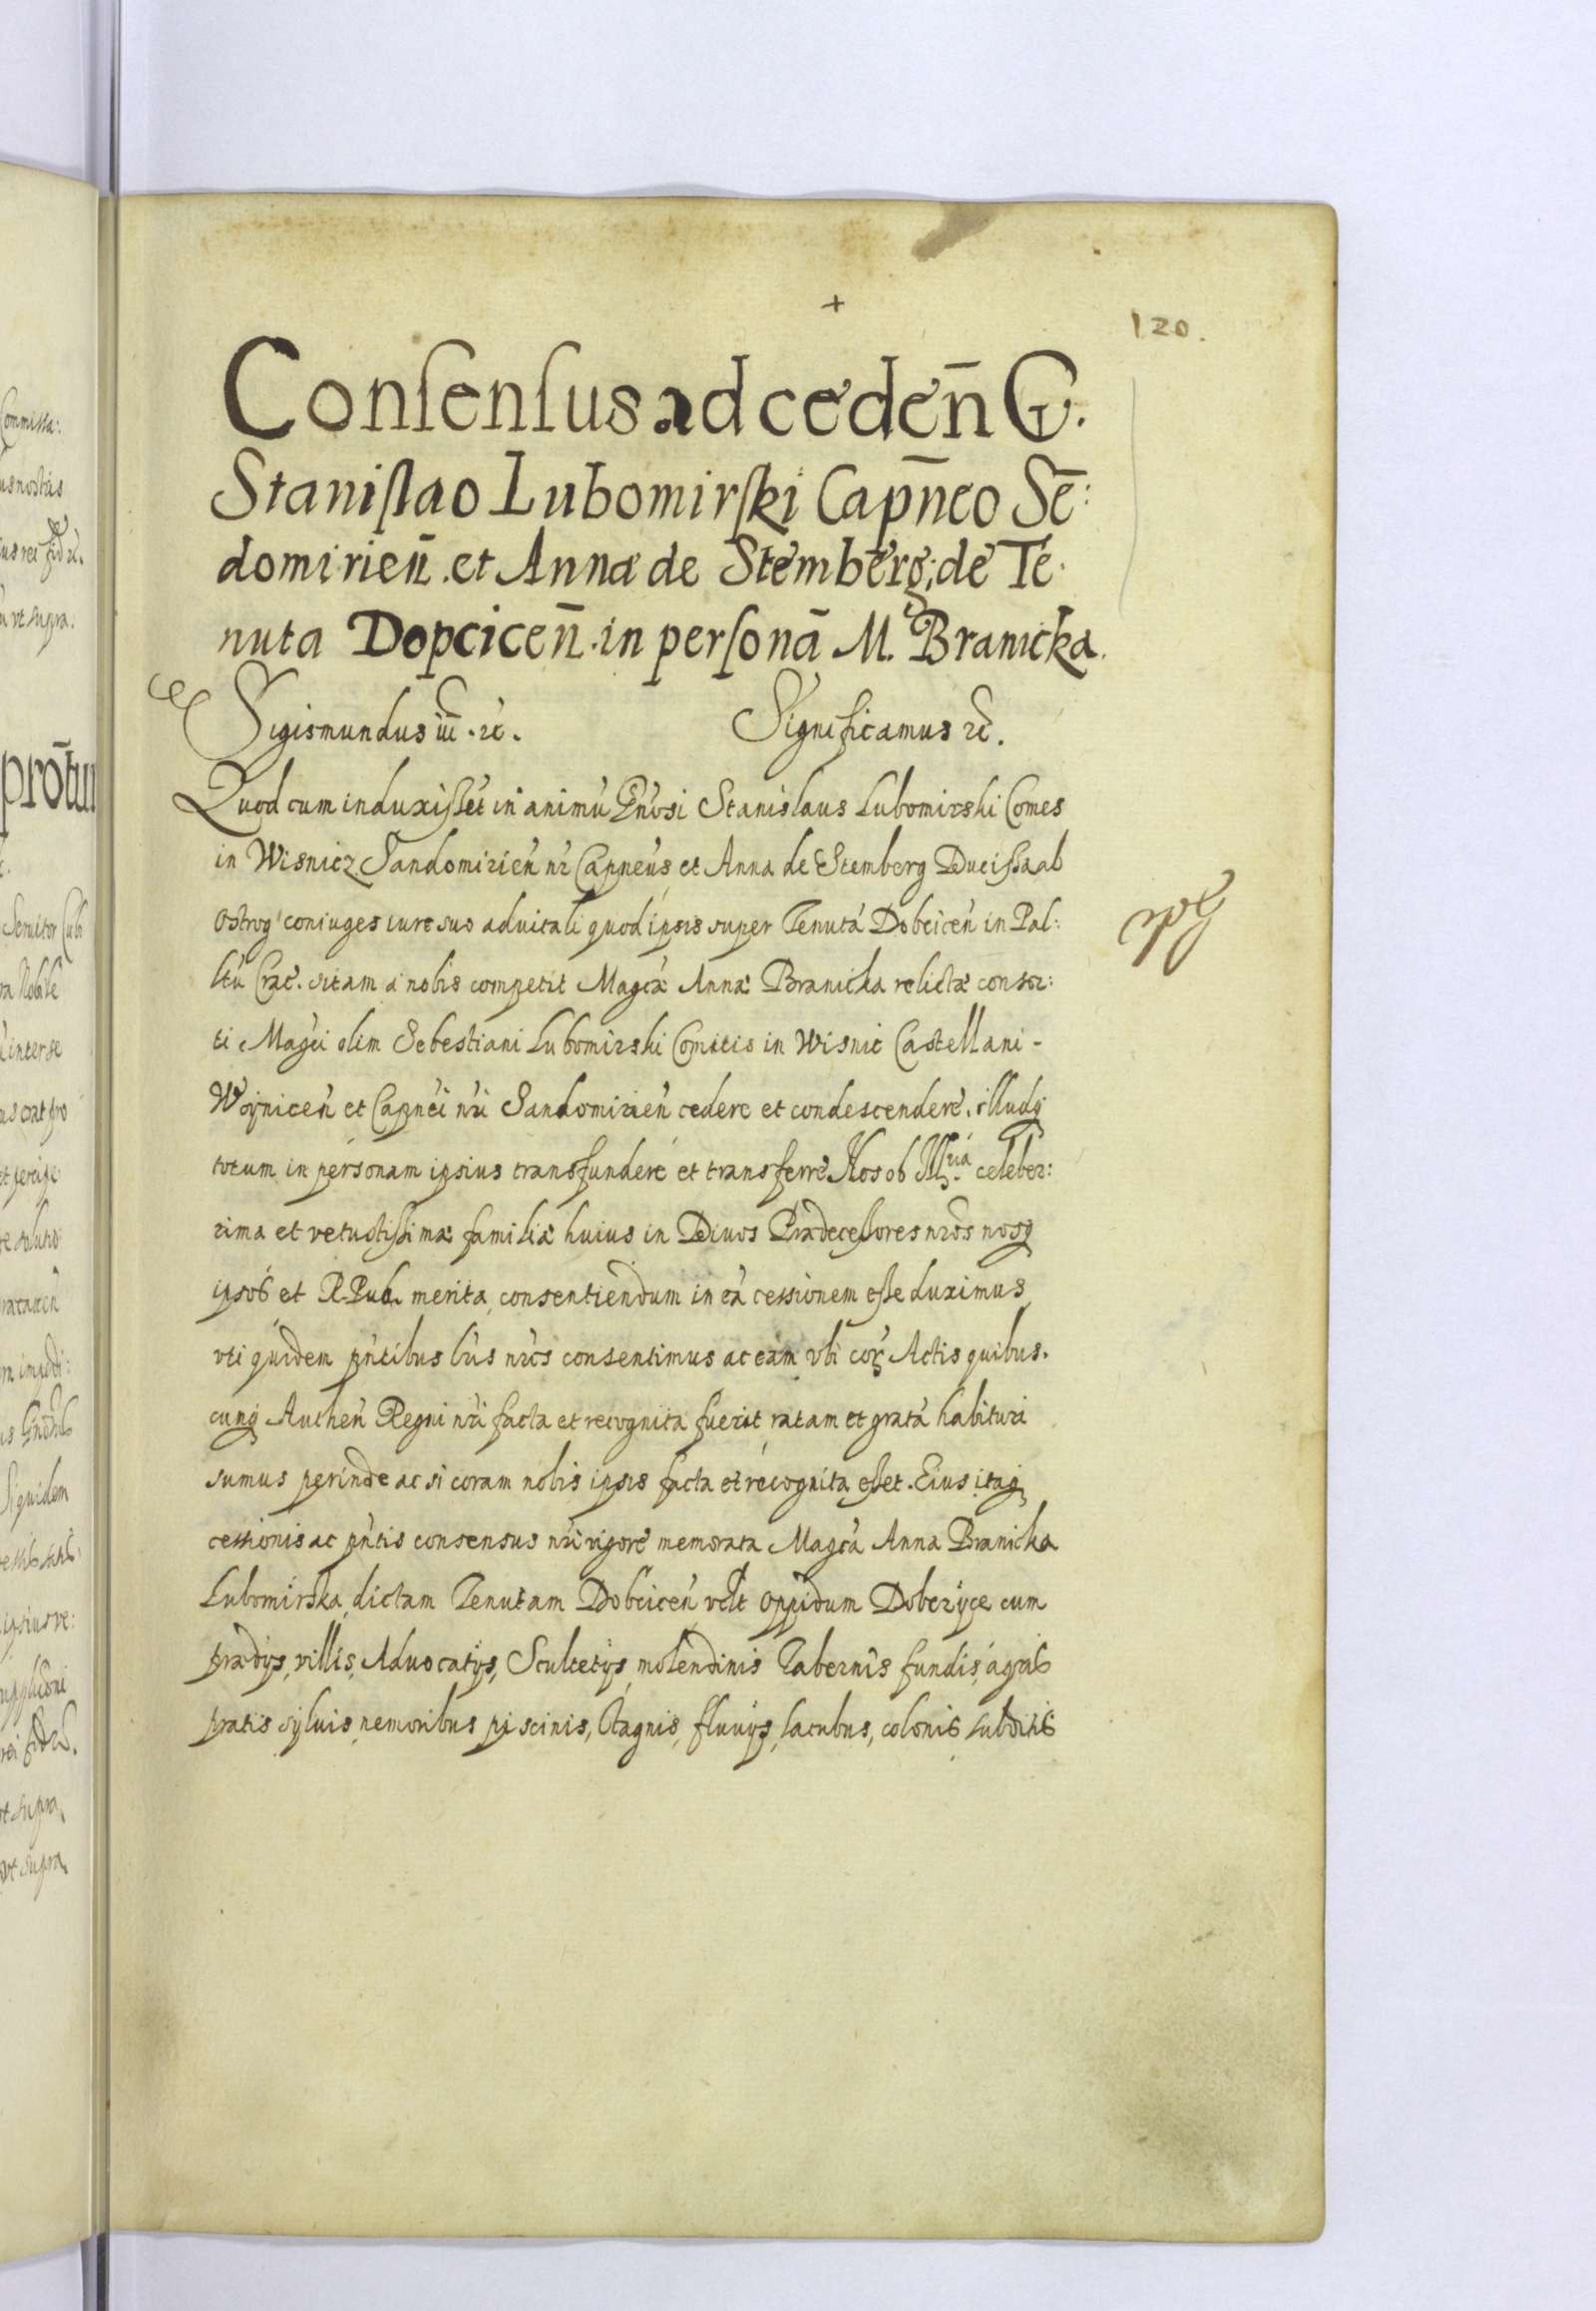 120.
Consensus ad ceden̄ G.
Stanislao Lubomirski Capn̄eo Sē:
domirien̄. et Annæ de Stemberg, de Te:
nuta Dopcicen̄. in personā M. Branicka.
Sigismundus iii. etc. Significamus etc.
Quod cum induxissēt in animū Gn̄osi Stanislaus Lubomirski Comes
in Wisnicz Sandomirien̄ nr̄ Capneūs et Anna de Stemberg Ducissa ab
Ostrog coniuges iure suo aduitali quod ipsis super Tenutā Dobcicen̄ in Pal:
ltū Crac̄. vitam a nobis competit Magcæ Annæ Branicka relictæ consor:
ti Magc̄i olim Sebestiani Lubomirski Comitis in Wisnic Castellani-
Woÿnicen̄ et Capnēi nr̄i Sandomirien̄ cedere et condescendere, illudq̨
totum in personam ipsius transfundere et transferre Nos ob Ill. celeber:
rima et vetustissimæ familiæ huius in Diuos Prædecessores nr̄os nosq̨
ipsos et R. Pub. merita, consentiendum in eā cessionem esse duximus,
vti quidem pn̄tibus lr̄is nr̄is consentimus ac eam vbi cor̄ Actis quibus.
cunq̨ Authen̄ Regni nr̄i facta et recognita fuerit, ratam et gratā habituri
sumus perinde ac si coram nobis ipsis facta et recognita esset. Eius itaq̨
cessionis ac pn̄tis consensus nr̄i vigore memorata Magcā Anna Branicka
Lubomirska, dictam Tenutam Dobcicen̄ vclt oppidum Dobczÿce cum
prædÿs, villis, Aduocatÿs, Scultetÿs, molendinis Tabernis fundis, agris
pratis syluis, nemoribus piscinis, stagnis, fluuÿs, lacubus, colonis subditis